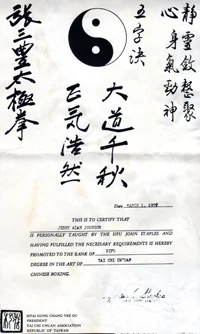 靜靈斂整聚
心身氣勁神
五字訣
張三豐太極拳
大道千秋
正氣浩然
Date MARCH 1, 1978
THIS IS TO CERTIFY THAT
JERRY ALAN JOHNSON
IS PERSONALLY TAUGHT BY THE SIFU JOHN STAPLES AND
HAVING FULFILLED THE NECESSARY REQUIREMENTS IS HEREBY
PROMOTED TO THE RANK OF SIFU
DEGREE IN THE ART OF TAI CHI CH'UAN
CHINESE BOXING.
PRESIDENT
TAI CHI CHUAN ASSOCIATION
REPUBLIC OF TAIWAN